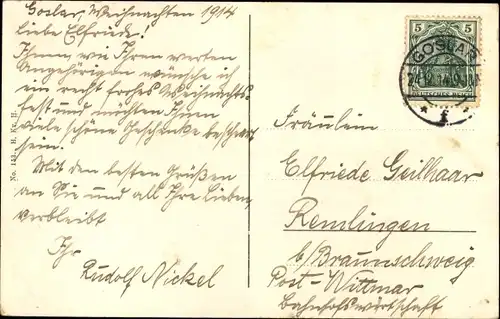 Goslar, Weihnachten 1914
Liebe Elfriede!
Ihnen, wie Ihren werten
Angehörigen wünsche ich
ein recht frohes Weihnachts-
fest und möchten Ihnen
viele schöne Geschenke beschert
sein.
Mit den besten Grüßen
an Sie und all Ihre Lieben
verbleibt
Ihr
Rudolf Nickel
No. H. Kn. H.
5 5
GOSLAR
DEUTSCHES REICH
Fräulein
Elfriede Geilhaar
Remlingen
b/Braunschweig
Post-Wittmar
Bahnhofswirtschaft